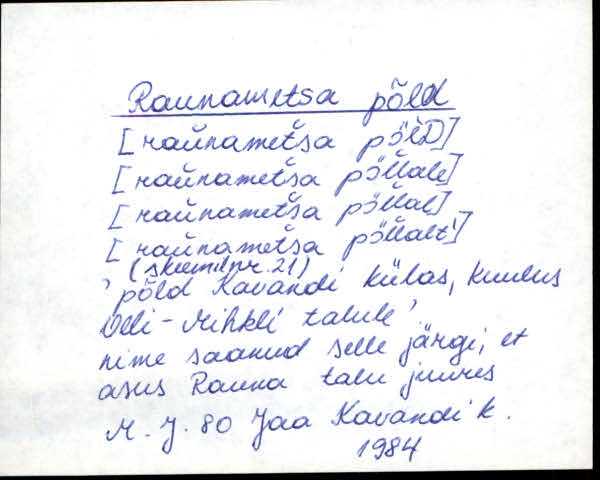 Raunametsa põld
[raŭnamet̆sa pö̀lD]
[raŭnamet̆sa pöl̆lale]
[raŭnamet̆sa pöl̆lal]
[raŭnamet̆sa pöl̆lalt]
(skeemil nr. 21)
'põld Kavandi külas, kuulus
Velli-Mihkli talule'
nime saanud selle järgi, et
asus Rauna talu juures
M. J. 80 Jaa Kavandi k.
1984